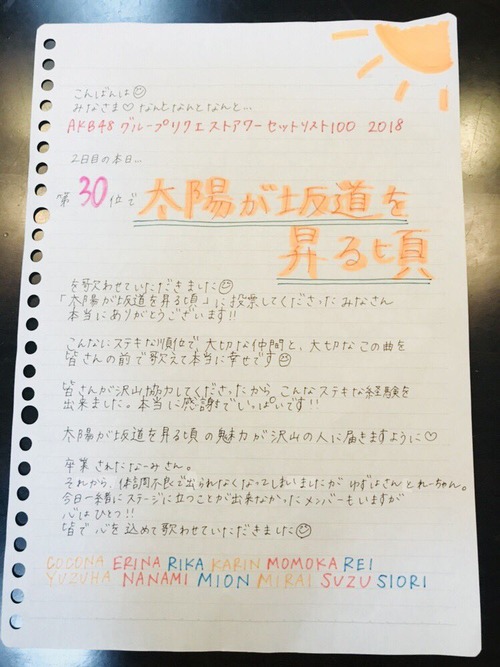 こんばんは☺
みなさま♡なんとなんとなんと...
AKB48 グループリクエストアワーセットリスト100 2018
2日目の本日...
第30位で 太陽が坂道を
昇る頃
を歌わせていただきました☺
「太陽が坂道を昇る頃」に投票してくださったみなさん
本当にありがとうございます!!
こんなにステキな順位で大切な仲間と、大切なこの曲を
皆さんの前で歌えて本当に幸せです☺
皆さんが沢山協力してくださったから こんなステキな経験を
出来ました。本当に感謝でいっぱいです!!
太陽が坂道を昇る頃の魅力が沢山の人に届きますように♡
卒業されたなーみさん。
それから、体調不良で出られなくなってしまいましたが ゆずはさんとれーちゃん。
今日一緒にステージに立つことが出来なかったメンバーもいますが
心はひとつ!!
皆で心を込めて歌わせていただきました☺
COCONA ERINA RIKA KARIN MOMOKA REI
YUZUHA NANAMI MION MIRAI SUZU SIORI